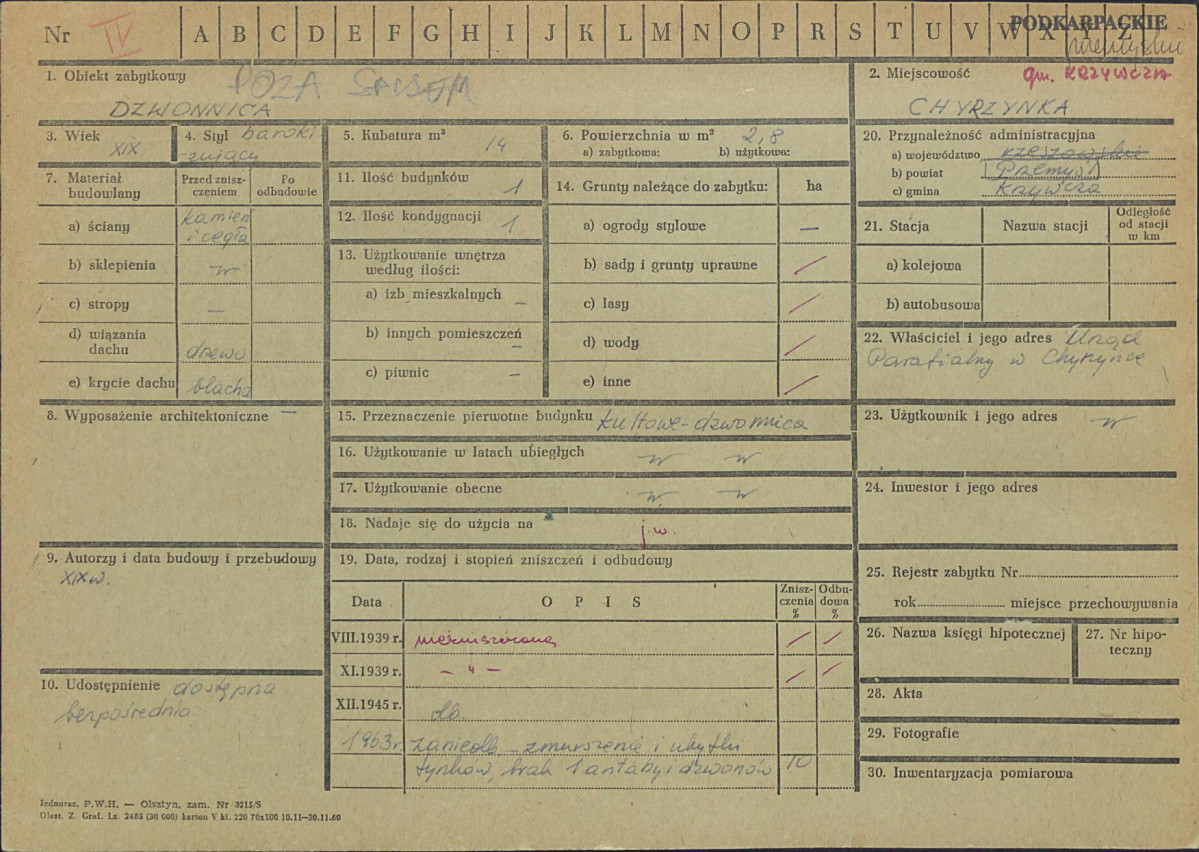 Nr IV A B C D E F G H I J K L M N O P R S T U V W X Y Z PODKARPACKIE
przemyskie
1. Obiekt zabytkowy POZA SPISEM
DZWONNICA
2. Miejscowość gm. KRZYWCZA
CHYRZYNKA
3. Wiek XIX
4. Styl baroki
zujący
5. Kubatura m³ 14
6. Powierzchnia w m² 2,8
a) zabytkowa: b) użytkowa:
20. Przynależność administracyjna
a) województwo rzeszowskie
b) powiat Przemyśl
c) gmina Krzywcza
7. Materiał budowlany
Przed znisz-
czeniem
Po
odbudowie
a) ściany kamień
i cegła
b) sklepienia
c) stropy —
d) wiązania
dachu drzewo
e) krycie dachu blacha
11. Ilość budynków 1
12. Ilość kondygnacji 1
13. Użytkowanie wnętrza
według ilości:
a) izb mieszkalnych —
b) innych pomieszczeń —
c) piwnic —
14. Grunty należące do zabytku: ha
a) ogrody stylowe —
b) sady i grunty uprawne /
c) lasy /
d) wody /
e) inne /
21. Stacja Nazwa stacji
Odległość
od stacji
w km
a) kolejowa
b) autobusowa
22. Właściciel i jego adres Urząd
Parafialny w Chyrzynce
8. Wyposażenie architektoniczne —
15. Przeznaczenie pierwotne budynku kultowe - dzwonnica
16. Użytkowanie w latach ubiegłych
17. Użytkowanie obecne
18. Nadaje się do użycia na j.w.
23. Użytkownik i jego adres
24. Inwestor i jego adres
9. Autorzy i data budowy i przebudowy
XIX w.
19. Data, rodzaj i stopień zniszczeń i odbudowy
Data O P I S
Znisz-
czenia
%
Odbu-
dowa
%
VIII.1939 r. niezniszczona / /
XI.1939 r. — " — / /
XII.1945 r. db.
1963 r. zaniedb - zmurszenia i ubytki
tynków, brak 1 antaby i dzwonów 10
25. Rejestr zabytku Nr
rok miejsce przechowywania
26. Nazwa księgi hipotecznej
27. Nr hipo-
teczny
28. Akta
29. Fotografie
30. Inwentaryzacja pomiarowa
10. Udostępnienie dostępna
bezpośrednio
Jednoraz. P.W.H. — Olsztyn, zam. Nr 3215/S
Olszt. Z. Graf. Lz. 2485 (30 000) karton V kl. 220 70x100 10.11-30.11.60